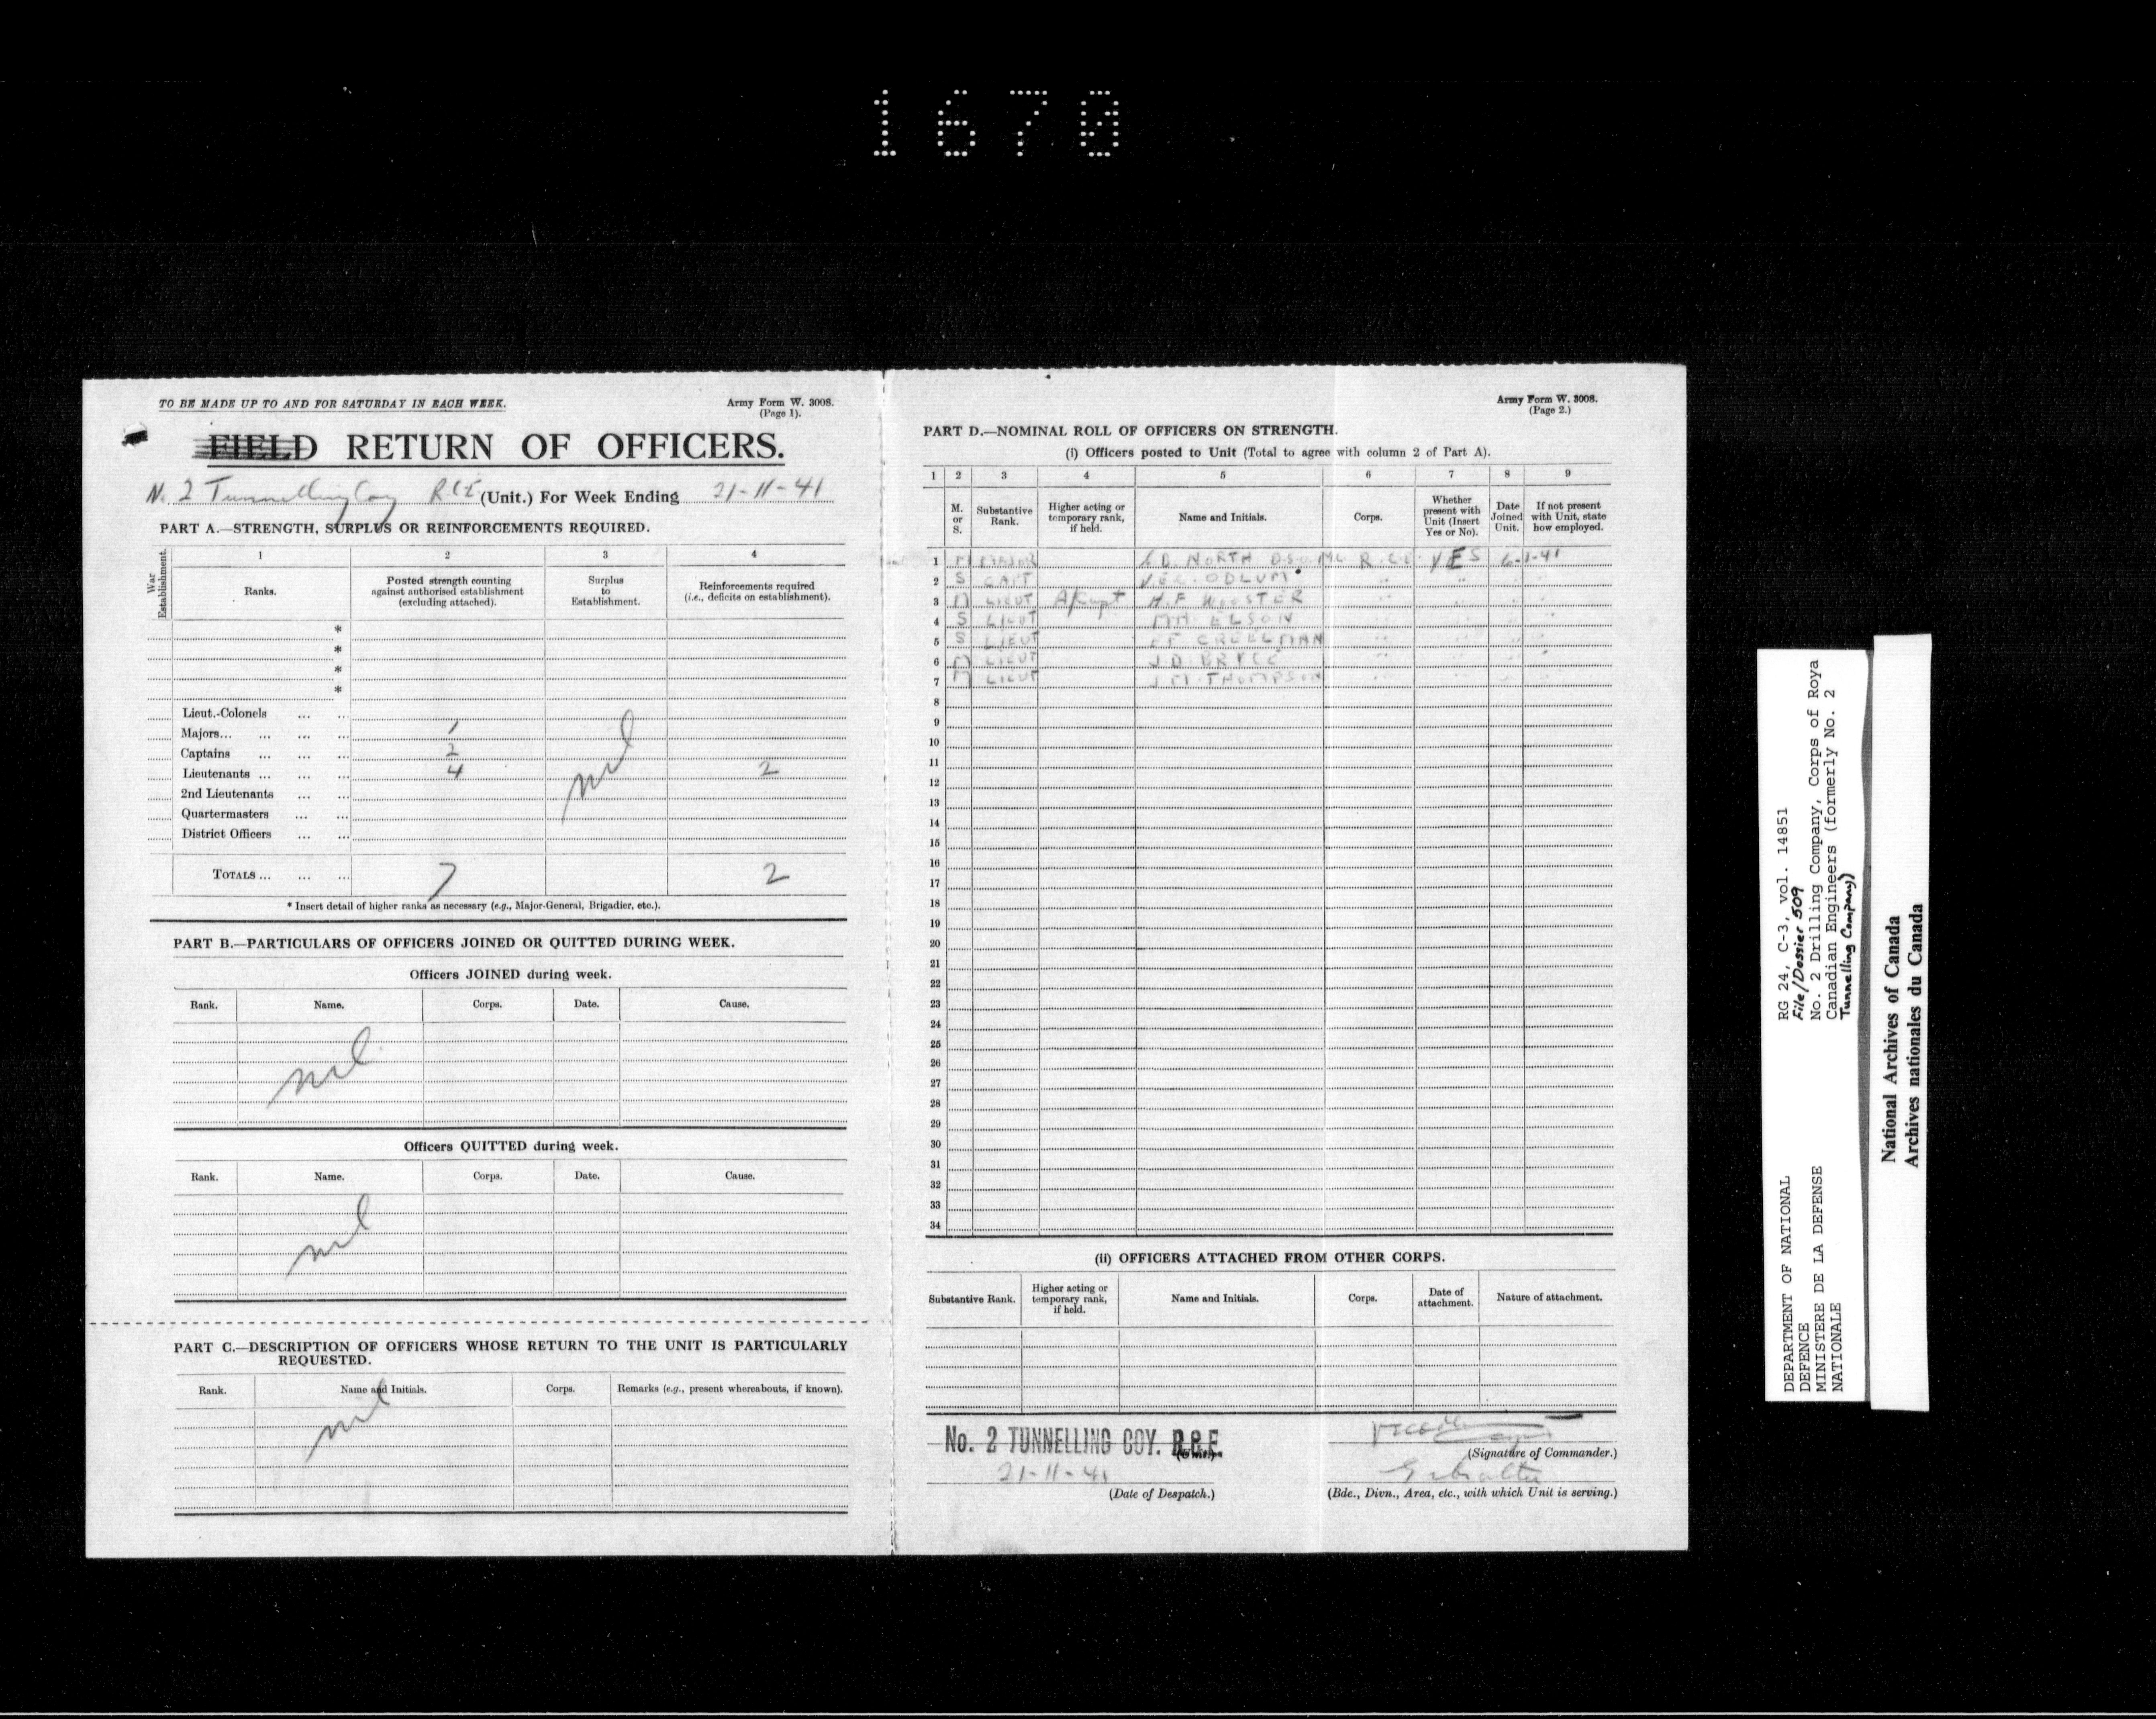 1670
TO BE MADE UP TO AND FOR SATURDAY IN EACH WEEK.
Army Form W. 3008.
(Page 1).
FIELD RETURN OF OFFICERS.
No. 2 Tunnelling Coy RCE (Unit.) For Week Ending 21-11-41
PART A.—STRENGTH, SURPLUS OR REINFORCEMENTS REQUIRED.
War Establishment.
1 2 3 4
Ranks. Posted strength counting against authorised establishment (excluding attached). Surplus to Establishment. Reinforcements required (i.e., deficits on establishment).
*
*
*
*
Lieut.-Colonels ... ...
Majors... ... ... ... 1
Captains ... ... ... 2
Lieutenants ... ... ... 4 nil 2
2nd Lieutenants ... ...
Quartermasters ... ...
District Officers ... ...
TOTALS ... ... ... 7 2
* Insert detail of higher ranks as necessary (e.g., Major-General, Brigadier, etc.).
PART B.—PARTICULARS OF OFFICERS JOINED OR QUITTED DURING WEEK.
Officers JOINED during week.
Rank. Name. Corps. Date. Cause.
nil
Officers QUITTED during week.
Rank. Name. Corps. Date. Cause.
nil
PART C.—DESCRIPTION OF OFFICERS WHOSE RETURN TO THE UNIT IS PARTICULARLY
REQUESTED.
Rank. Name and Initials. Corps. Remarks (e.g., present whereabouts, if known).
nil
Army Form W. 3008.
(Page 2.)
PART D.—NOMINAL ROLL OF OFFICERS ON STRENGTH.
(i) Officers posted to Unit (Total to agree with column 2 of Part A).
1 2 3 4 5 6 7 8 9
M. or S. Substantive Rank. Higher acting or temporary rank, if held. Name and Initials. Corps. Whether present with Unit (Insert Yes or No). Date Joined Unit. If not present with Unit, state how employed.
1 M MAJOR NORTH D.S.O. MC R.C.E. YES 6-1-41
2 S CAPT V.E.C. ODLUM " " "
3 M LIEUT A/Capt H.F. WOOSTER " " "
4 S LIEUT M.H. ELSON " " "
5 S LIEUT F.F. CREELMAN " " "
6 M LIEUT J.D. BRYCE " " "
7 M LIEUT J.M. THOMPSON " " "
8
9
10
11
12
13
14
15
16
17
18
19
20
21
22
23
24
25
26
27
28
29
30
31
32
33
34
(ii) OFFICERS ATTACHED FROM OTHER CORPS.
Substantive Rank. Higher acting or temporary rank, if held. Name and Initials. Corps. Date of attachment. Nature of attachment.
No. 2 TUNNELLING COY. R.C.E.
(Unit.)
(Signature of Commander.)
21-11-41
Gibraltar
(Date of Despatch.)
(Bde., Divn., Area, etc., with which Unit is serving.)
DEPARTMENT OF NATIONAL
DEFENCE
MINISTERE DE LA DEFENSE
NATIONALE
RG 24, C-3, vol. 14851
File/Dossier 509
No. 2 Drilling Company, Corps of Roya
Canadian Engineers (formerly No. 2
Tunnelling Company)
National Archives of Canada
Archives nationales du Canada